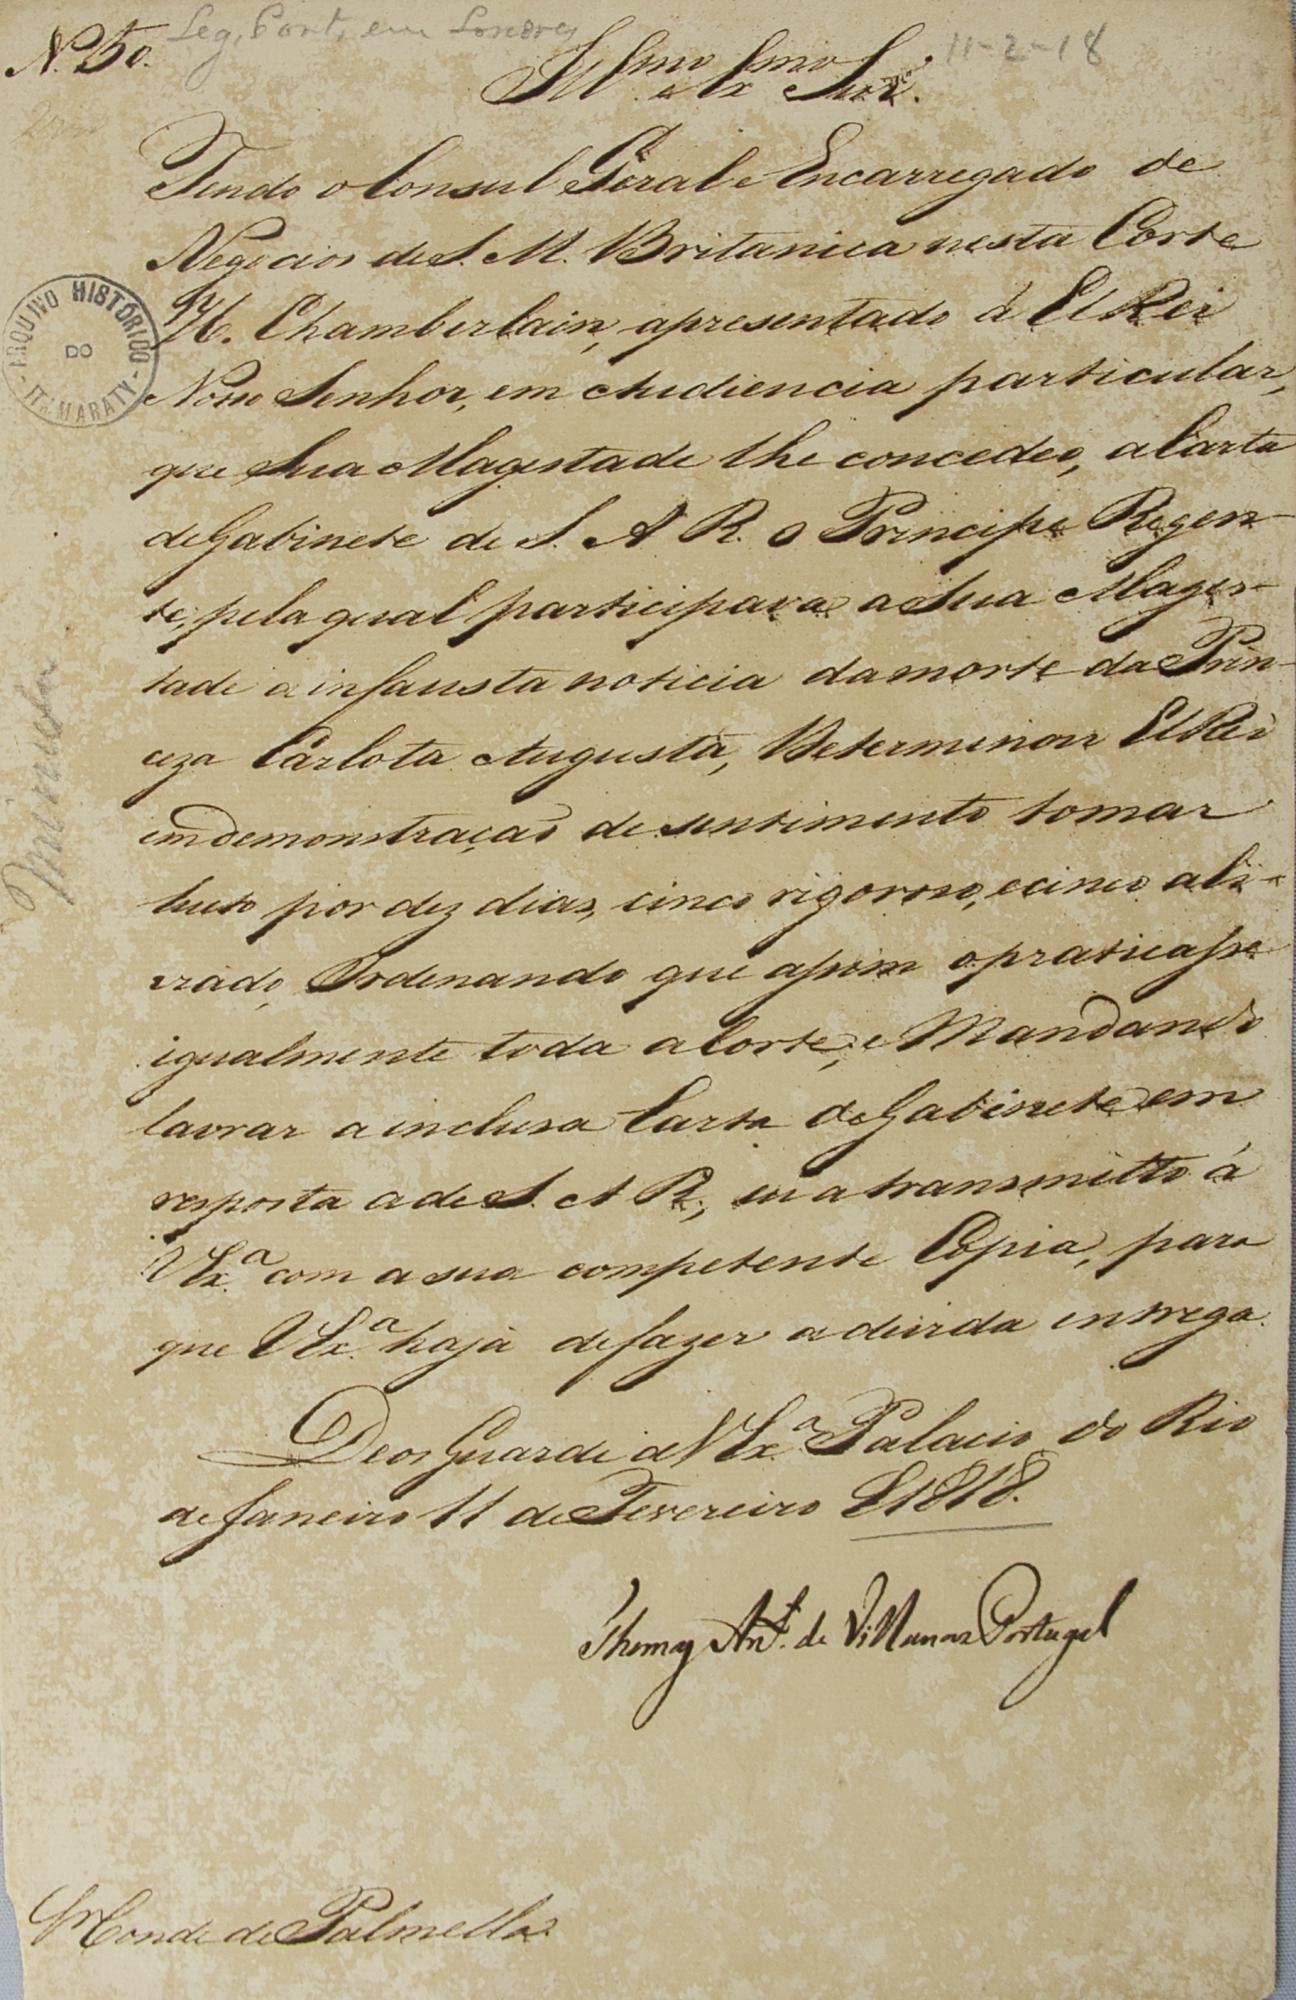 N.º 50.
Leg. Port. em Londres
11-2-18
Ill.mo e Ex.mo Snr.
Tendo o Consul Geral e Encarregado de
Negocios de S. M. Britanica nesta Corte
H. Chamberlain, apresentado á El Rei
Nosso Senhor, em Audiencia particular,
que Sua Magestade lhe concedeo, a Carta
de Gabinete de S. A R. o Principe Regen-
te, pela qual participava a Sua Mages-
tade a infausta noticia da morte da Prin-
ceza Carlota Augusta, Determinou El Rei
em demonstração de sentimento tomar
luto por dez dias, cinco rigoroso, e cinco ali-
viado, Ordenando que assim o praticasse
igualmente toda a Corte, e Mandando
lavrar a inclusa Carta de Gabinete em
resposta a de S. A R., eu a transmitto á
V Ex.ª com a sua competente Copia, para
que V Ex.ª haja de fazer a devida entrega.
Deos Guarde a V Ex.ª Palacio do Rio
de Janeiro 11 de Fevereiro de 1818.
Thomaz Ant.º de Villanova Portugal
Snr. Conde de Palmella
ARQUIVO HISTÓRICO
DO
ITAMARATY
Minuta